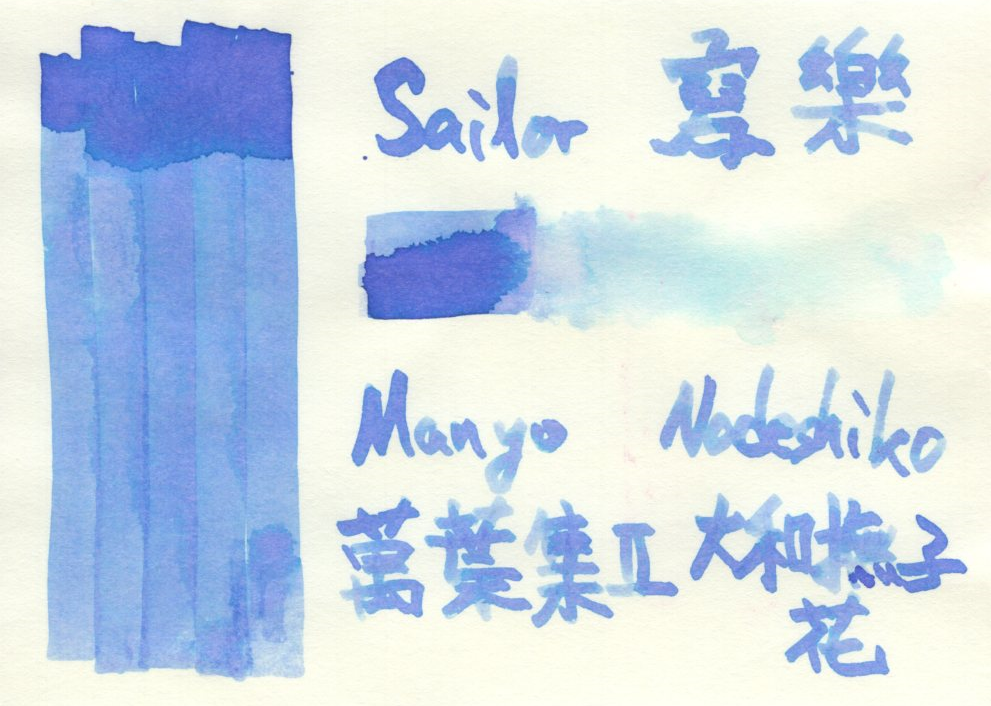 Sailor 寫樂
Manyo Nadeshiko
萬葉集II 大和撫子
花